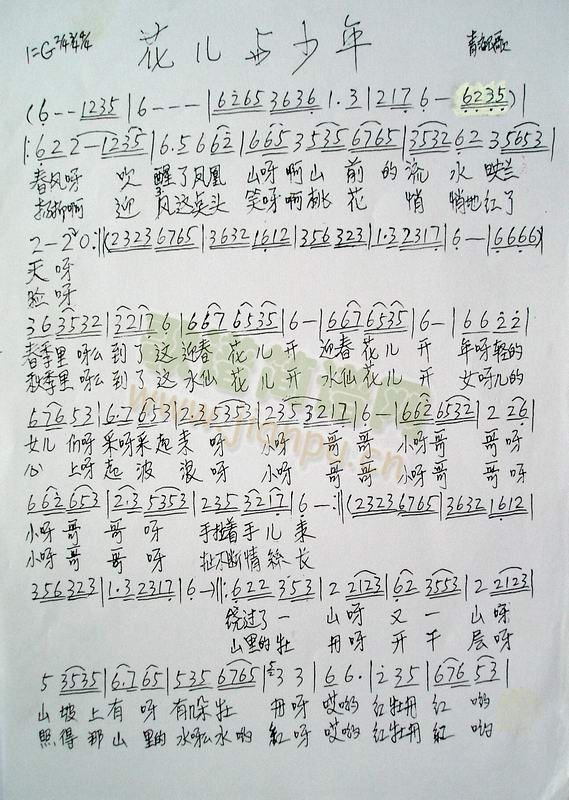 花儿与少年
1=G 2/4 3/4 4/4
(6 - - 1235 | 6 - - - | 6265 3636 1· 3 | 217 6 - 6235) |
|: 6 2 2 - 1235 | 6· 5 6 62 | 665 3535 6765 | 3532 62 3 5653 |
春风呀 吹 醒了凤凰 山呀啊山 前 的流 水
迎 风这点头 笑呀啊桃 花 悄 悄地红了
2 - 20 :|| (2323 6765 | 3632 1612 | 356 323 | 1·3 2317 | 6 - | 6666)
天呀
脸呀
36 3532 | 3217 6 | 667 6535 | 6 - | 667 6535 | 6 - | 6 6 2 2 |
春季里 呀么 到了这 迎春 花儿开 迎春 花儿 开 年呀轻的
秋季里 呀么 到了这 水仙 花儿开 水仙 花儿 开 女呀儿的
676 53 | 6·7 653 | 235 3553 | 235 3217 | 6 - | 662 6532 | 2 26 |
女儿 们呀 采呀采起来 呀 小呀 哥 哥 小呀哥 哥呀
心 上呀 起 波 浪 呀 小呀 哥 哥 小呀哥 哥呀
662 653 | 2·3 5353 | 235 3217 | 6 - :|| (2323 6765 | 3632 1612 |
小呀哥 哥 呀 手拉着手儿来
小呀哥 哥 呀 扯不断情絲长
356 323 | 1·3 2317 | 6 -) ||: 622 353 | 2 2123 | 62 3553 | 2 2123 |
绕过了一 山呀 又一 山呀
山里的牡 丹呀 开千 层呀
5 3535 | 6·7 65 | 535 6765 | 3 3 | 6 6· | 2 35 | 676 53 |
山 坡上有 呀 有朵牡 丹呀 哎哟 红牡丹 红 哟
照得那山 里的 水呀么水哟 紅呀 哎哟 红牡丹 紅 哟
www.jianpu.cn